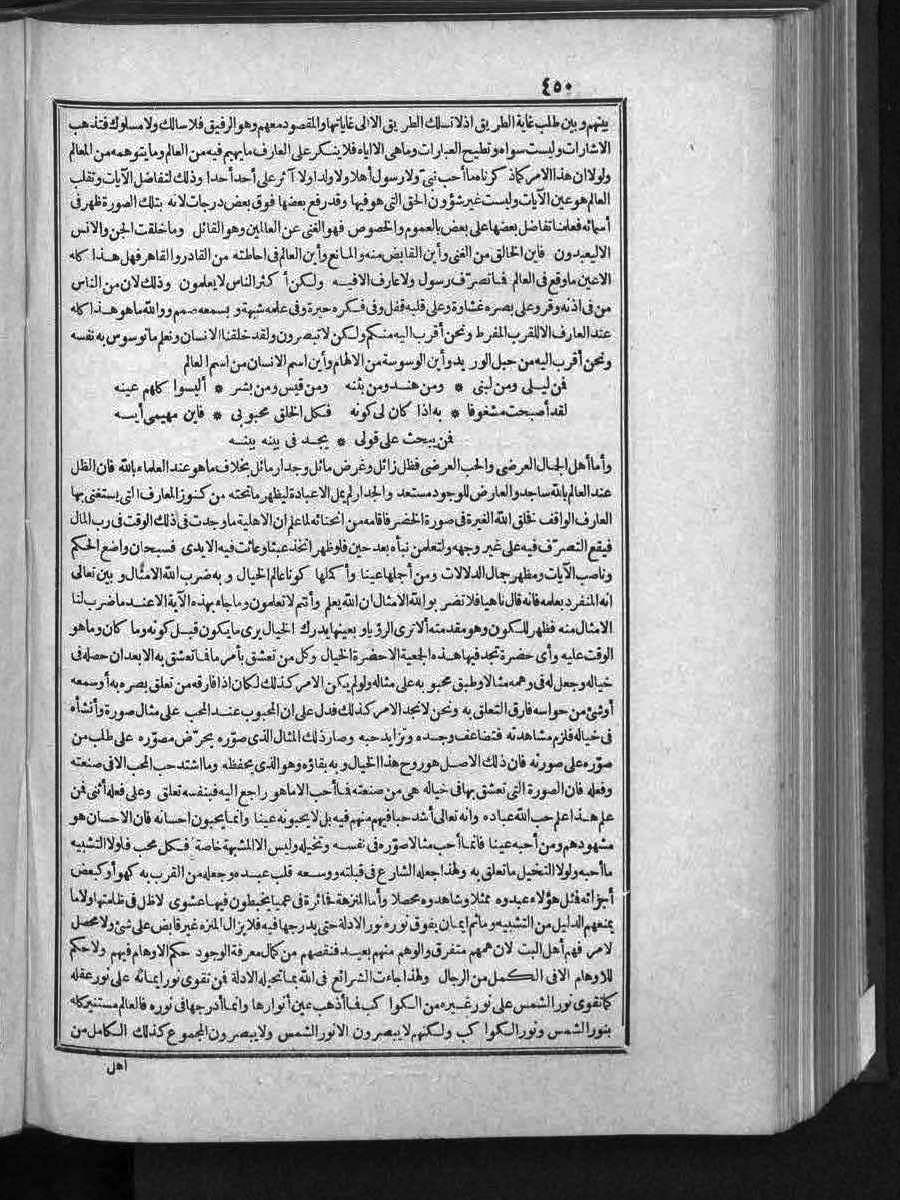 ٤٥٠
بينهم وبين طلب غاية الطريق اذ لا تسلك الطريق الا الى غاياتها والمقصود معهم وهو الرفيق فلا سالك ولا مسلوك فتذهب
الاشارات وليست سواه وتطيح العبارات وما هى الا اياه فلا ينكر على العارف ما يهيم فيه من العالم وما يتوهمه من المعالم
ولولا ان هذا الامر كما ذكرناه ما أحب نبىّ ولا رسول أهلا ولا ولدا ولا آثر على أحد أحدا وذلك لتفاضل الآيات وتقلب
العالم هو عين الآيات وليست غير شؤون الحق التى هو فيها وقد رفع بعضها فوق بعض درجات لانه بتلك الصورة ظهر فى
أسمائه فعلمنا تفاضل بعضها على بعض بالعموم والخصوص فهو الغنى عن العالمين وهو القائل وما خلقت الجن والانس
الا ليعبدون فاين الخالق من الغنى وأين القابض منه والمانع وأين العالم فى احاطته من القادر والقاهر فهل هذا كله
الا عين ما وقع فى العالم فما تصرّف رسول ولا عارف الا فيه ولكن أكثر الناس لا يعلمون وذلك لان من الناس
من فى اذنه وقر وعلى بصره غشاوة وعلى قلبه قفل وفى فكره حيرة وفى علمه شبهة وبسمعه صمم ووالله ما هو هذا كله
عند العارف الا القرب المفرط ونحن أقرب اليه منكم ولكن لا تبصرون ولقد خلقنا الانسان ونعلم ما توسوس به نفسه
ونحن أقرب اليه من حبل الوريد وأين الوسوسة من الالهام وأين اسم الانسان من اسم العالم
فمن ليلى ومن لبنى * ومن هند ومن بثنه ومن قيس ومن بشر * أليسوا كلهم عينه
لقد أصبحت مشغوفا * به اذا كان لى كونه فكل الخلق محبوبى * فاين مهيمى أينه
فمن يبحث على قولى * يجد فى بينه بينه
وأما أهل الجمال العرضى والحب العرضى فظل زائل وغرض مائل وجدار مائل بخلاف ما هو عند العلماء بالله فان الظل
عند العالم بالله ساجد والعارض للوجود مستعد والجدار لم يمل الا عبادة ليظهر ما تحته من كنوز المعارف التى يستغنى بها
العارف الواقف فخلق الله الغيرة فى صورة الخضر فاقامه من انحنائه لما علم ان الاهلية ما وجدت فى ذلك الوقت فى رب المال
فيقع التصرّف فيه على غير وجهه ولتعلمن نبأه بعد حين فلو ظهر اتخذ عبثا وعاثت فيه الايدى فسبحان واضع الحكم
وناصب الآيات ومظهر جمال الدلالات ومن أجلها عينا وأكملها كونا عالم الخيال وبه ضرب الله الامثال وبين تعالى
انه المنفرد بعلمه فانه قال ناهيا فلا تضربوا لله الامثال ان الله يعلم وأنتم لا تعلمون وما جاء بهذه الآية الا عند ما ضرب لنا
الامثال منه فظهر للكون وهو مقدمته ألا ترى الرؤيا وبعينها يدرك الخيال يرى ما يكون قبل كونه وما كان وما هو
الوقت عليه وأى حضرة تجد فيها هذه الجمعية الا حضرة الخيال وكل من تعشق بأمر ما فما تعشق به الا بعد ان حصله فى
خياله وجعل له فى وهمه مثالا وطبق محبوبه على مثاله ولو لم يكن الامر كذلك لكان اذا فارقه من تعلق بصره به أو سمعه
أو شئ من حواسه فارق التعلق به ونحن لا نجد الامر كذلك فدل على ان المحبوب عند المحب على مثال صورة وأنشأه
فى خياله فلزم مشاهدته فتضاعف وجده وتزايد حبه وصار ذلك المثال الذى صوّره يحرّض مصوّره على طلب من
صوّره على صورته فان ذلك الاصل هو روح هذا الخيال وبه بقاؤه وهو الذى يحفظه وما اشتد حب المحب الا فى صنعته
وفعله فان الصورة التى تعشق بها فى خياله هى من صنعته فما أحب الا ما هو راجع اليه فبنفسه تعلق وعلى فعله أثنى فمن
علم هذا علم حب الله عباده وانه تعالى أشد حبا فيهم منهم فيه بل لا يحبونه عينا وانما يحبون احسانه فان الاحسان هو
مشهودهم ومن أحبه عينا فانما أحب مثالا صوّره فى نفسه وتخيله وليس الا المشبهة خاصة فكل محب فلولا التشبيه
ما أحبه ولولا التخيل ما تعلق به ولهذا جعله الشارع فى قبلته ووسعه قلب عبده وجعله من القرب به كهو أو كبعض
أجزائه فمثل هؤلاء عبدوه ممثلا وشاهدوه محصلا وأما المنزهة فحائرة فى عمياء يخبطون فيها عشوى لا ظل فى ظلمتها ولا ما
يمنعهم الدليل من التشبيه وما ثم ايمان يفوق نوره نور الادلة حتى يدرجها فيه فلا يزال المنزه غير قابض على شئ ولا محصل
لامر فهم أهل البت لان همهم متفرق والوهم منهم بعيد فنقصهم من كمال معرفة الوجود حكم الاوهام فيهم ولا حكم
للاوهام الا فى الكمل من الرجال ولهذا جاءت الشرائع فى الله بما تحيله الادلة فمن تقوى نور ايمانه على نور عقله
كما تقوى نور الشمس على نور غيره من الكواكب فما أذهب عين أنوارها وانما أدرجها فى نوره فالعالم مستنير كله
بنور الشمس ونور الكواكب ولكنهم لا يبصرون الا نور الشمس ولا يبصرون المجموع كذلك الكامل من
أهل